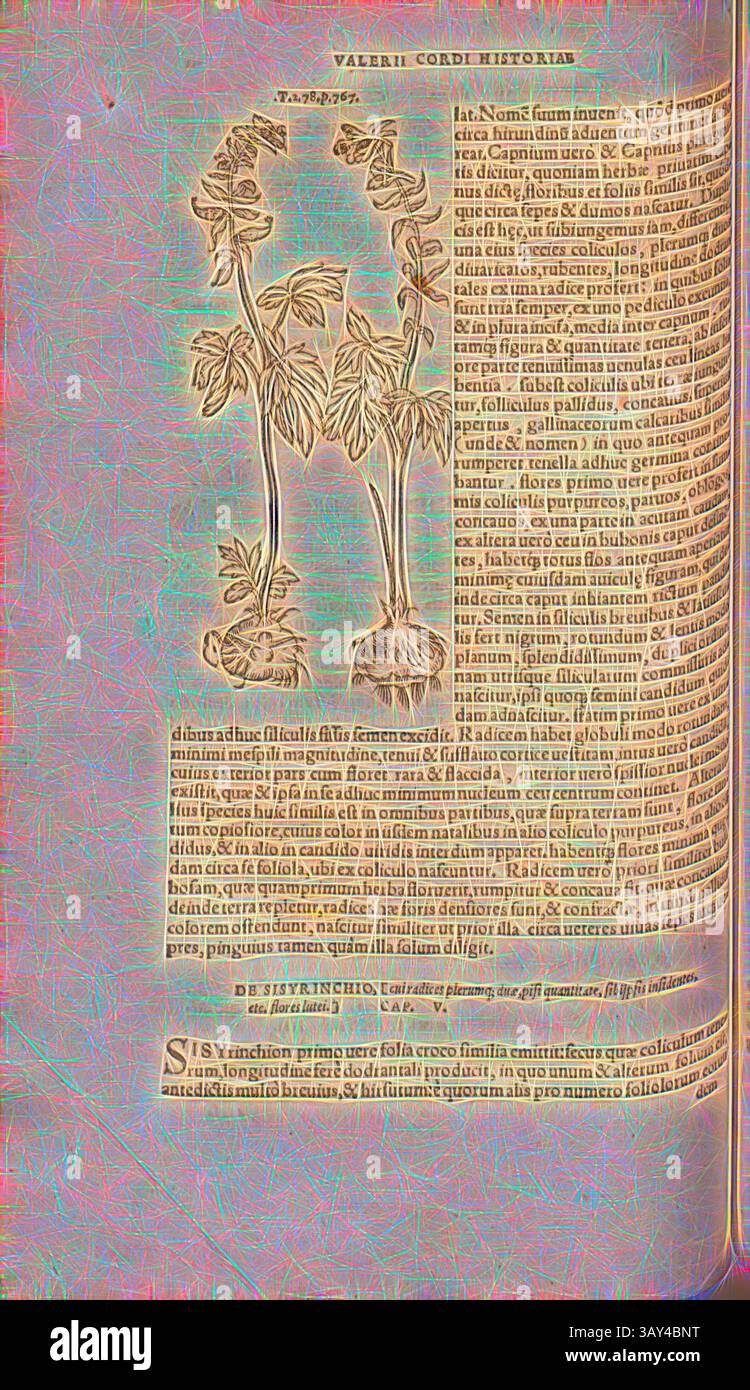 VALERII CORDI HISTORIAE
.T.2.78.p.767.
lat. Nomē suum inuenit, quod primo uere
circa hirundinū aduentum germinet & flo
reat. Capnium uerò & Capnius
iis dicitur, quoniam herbæ priuatim
nus dictę, floribus et foliis similis sit,
que circa sepes & dumos nascatur.
cis est hęc, ut subiungemus iam, differentia.
na eius species coliculos, plerumq; duos
diuaricatos, rubentes, longitudine dodran
tales ex una radice profert: in quibus folia
sunt tria semper, ex uno pediculo exeuntia
& in plura incisa, media inter capnum,
figura & quantitate tenera, ab inferi
ore parte tenuissimas uenulas ceu lineas ha
bentia. subest coliculis ubi
tur, folliculus pallidus, concauus,
apertus, gallinaceorum calcaribus similis
(unde & nomen) in quo antequam pro
rumperet tenella adhuc germina contine
bantur. flores primo uere profert in sum
mis coliculis purpureos, paruos, oblogos
concauos, ex una parte in acutam caudam,
ex altera uero ceu in bubonis caput desinen
tes, habetq; totus flos antequam aperiatur
minimę cuiusdam auiculę figuram, qui de
inde circa caput inhianti rictum pandi
tur. Semen in siliculis breuibus &
lis fert nigrum, rotundum & lentis modo
planum, splendidissimum, duplici ordine
nam utrisque silicularum commissuris ad
nascitur, ipsi quoq; semini candidum quid
dam adnascitur. statim primo uere ex uiri
libus adhuc siliculis fissis semen excidit. Radicem habet globuli modo rotundam,
minimi mespili magnitudine, tenui & subflauo cortice uestitam, intus uero candidam
cuius exterior pars cum floret rara & flaccida, interior uero spissior nuclei modo
existit, quæ & ipsa in se adhuc minimum nucleum ceu centrum continet. Altera
ius species huic similis est in omnibus partibus, quæ supra terram sunt, floret
tum copiosiore, cuius color in iisdem natalibus in alio coliculo purpureus, in alio can
didus, & in alio in candido uiridis interdum apparet, habentq; flores minima quæ
dam circa se foliola, ubi ex coliculo nascuntur. Radicem uero priori similiter bul
bosam, quæ quamprimum herba floruerit, rumpitur & concaua fit, quæ concauitas
deinde terra repletur, radices hæ foris densiores sunt, & confractæ,
colorem ostendunt, nascitur similiter ut prior illa circa ueteres uiuas
pres, pinguius tamen quàm illa solum diligit.
DE SISYRINCHIO, [cui radices plerumq; duæ, pisi quantitate, sib ipsis insidentes,
etc. flores lutei.] CAP. V.
SISYrinchion primo uere folia croco similia emittit: secus quæ coliculum tene
rum, longitudine ferè dodrantali producit, in quo unum & alterum folium est,
antedictis multo breuius, & hirsutum: è quorum alis pro numero foliolorum eorun
dem
alamy
Image ID: 3AY4BNT
www.alamy.com